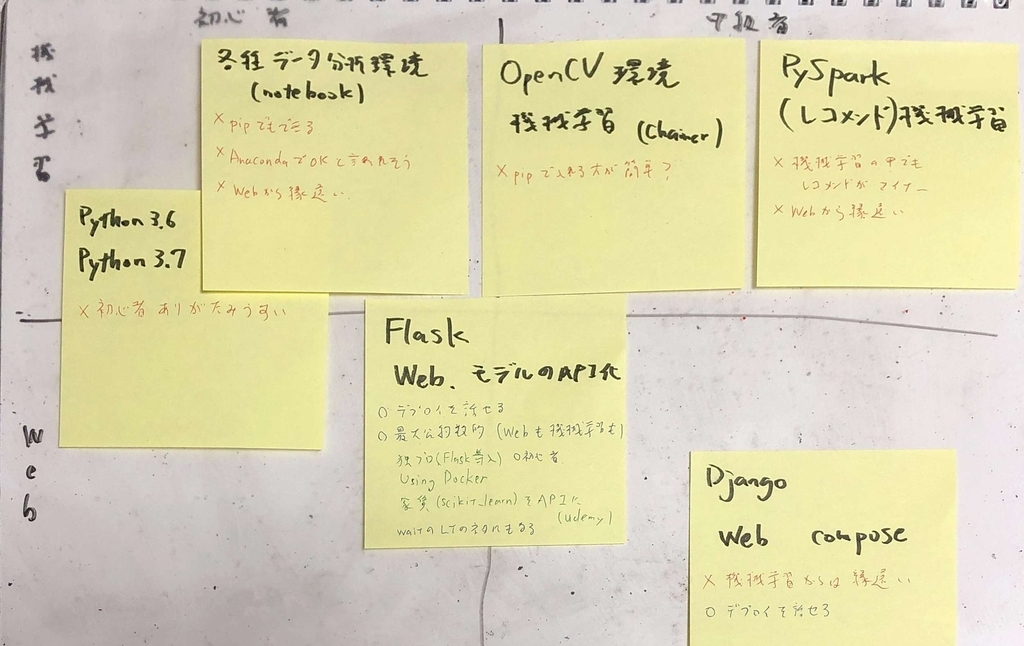 初心者
中級者
機械学習
各種データ分析環境
(notebook)
× pipでもできる
× AnacondaでOKと言われそう
× Webから縁遠い
OpenCV 環境
機械学習 (Chainer)
× pipで入れる方が簡単?
PySpark
(レコメンド)機械学習
× 機械学習の中でも
レコメンドがマイナー
× Webから縁遠い
Python 3.6
Python 3.7
× 初心者ありがたみうすい
Web
Flask
Web、モデルのAPI化
○ デプロイを話せる
○ 最大公約数的 (Webも機械学習も)
独プロ(Flask導入) ○初心者
Using Docker
家賃(scikit_learn)をAPIに
(udemy)
のLTのネタにもなる
Django
Web compose
× 機械学習からは縁遠い
○ デプロイを話せる